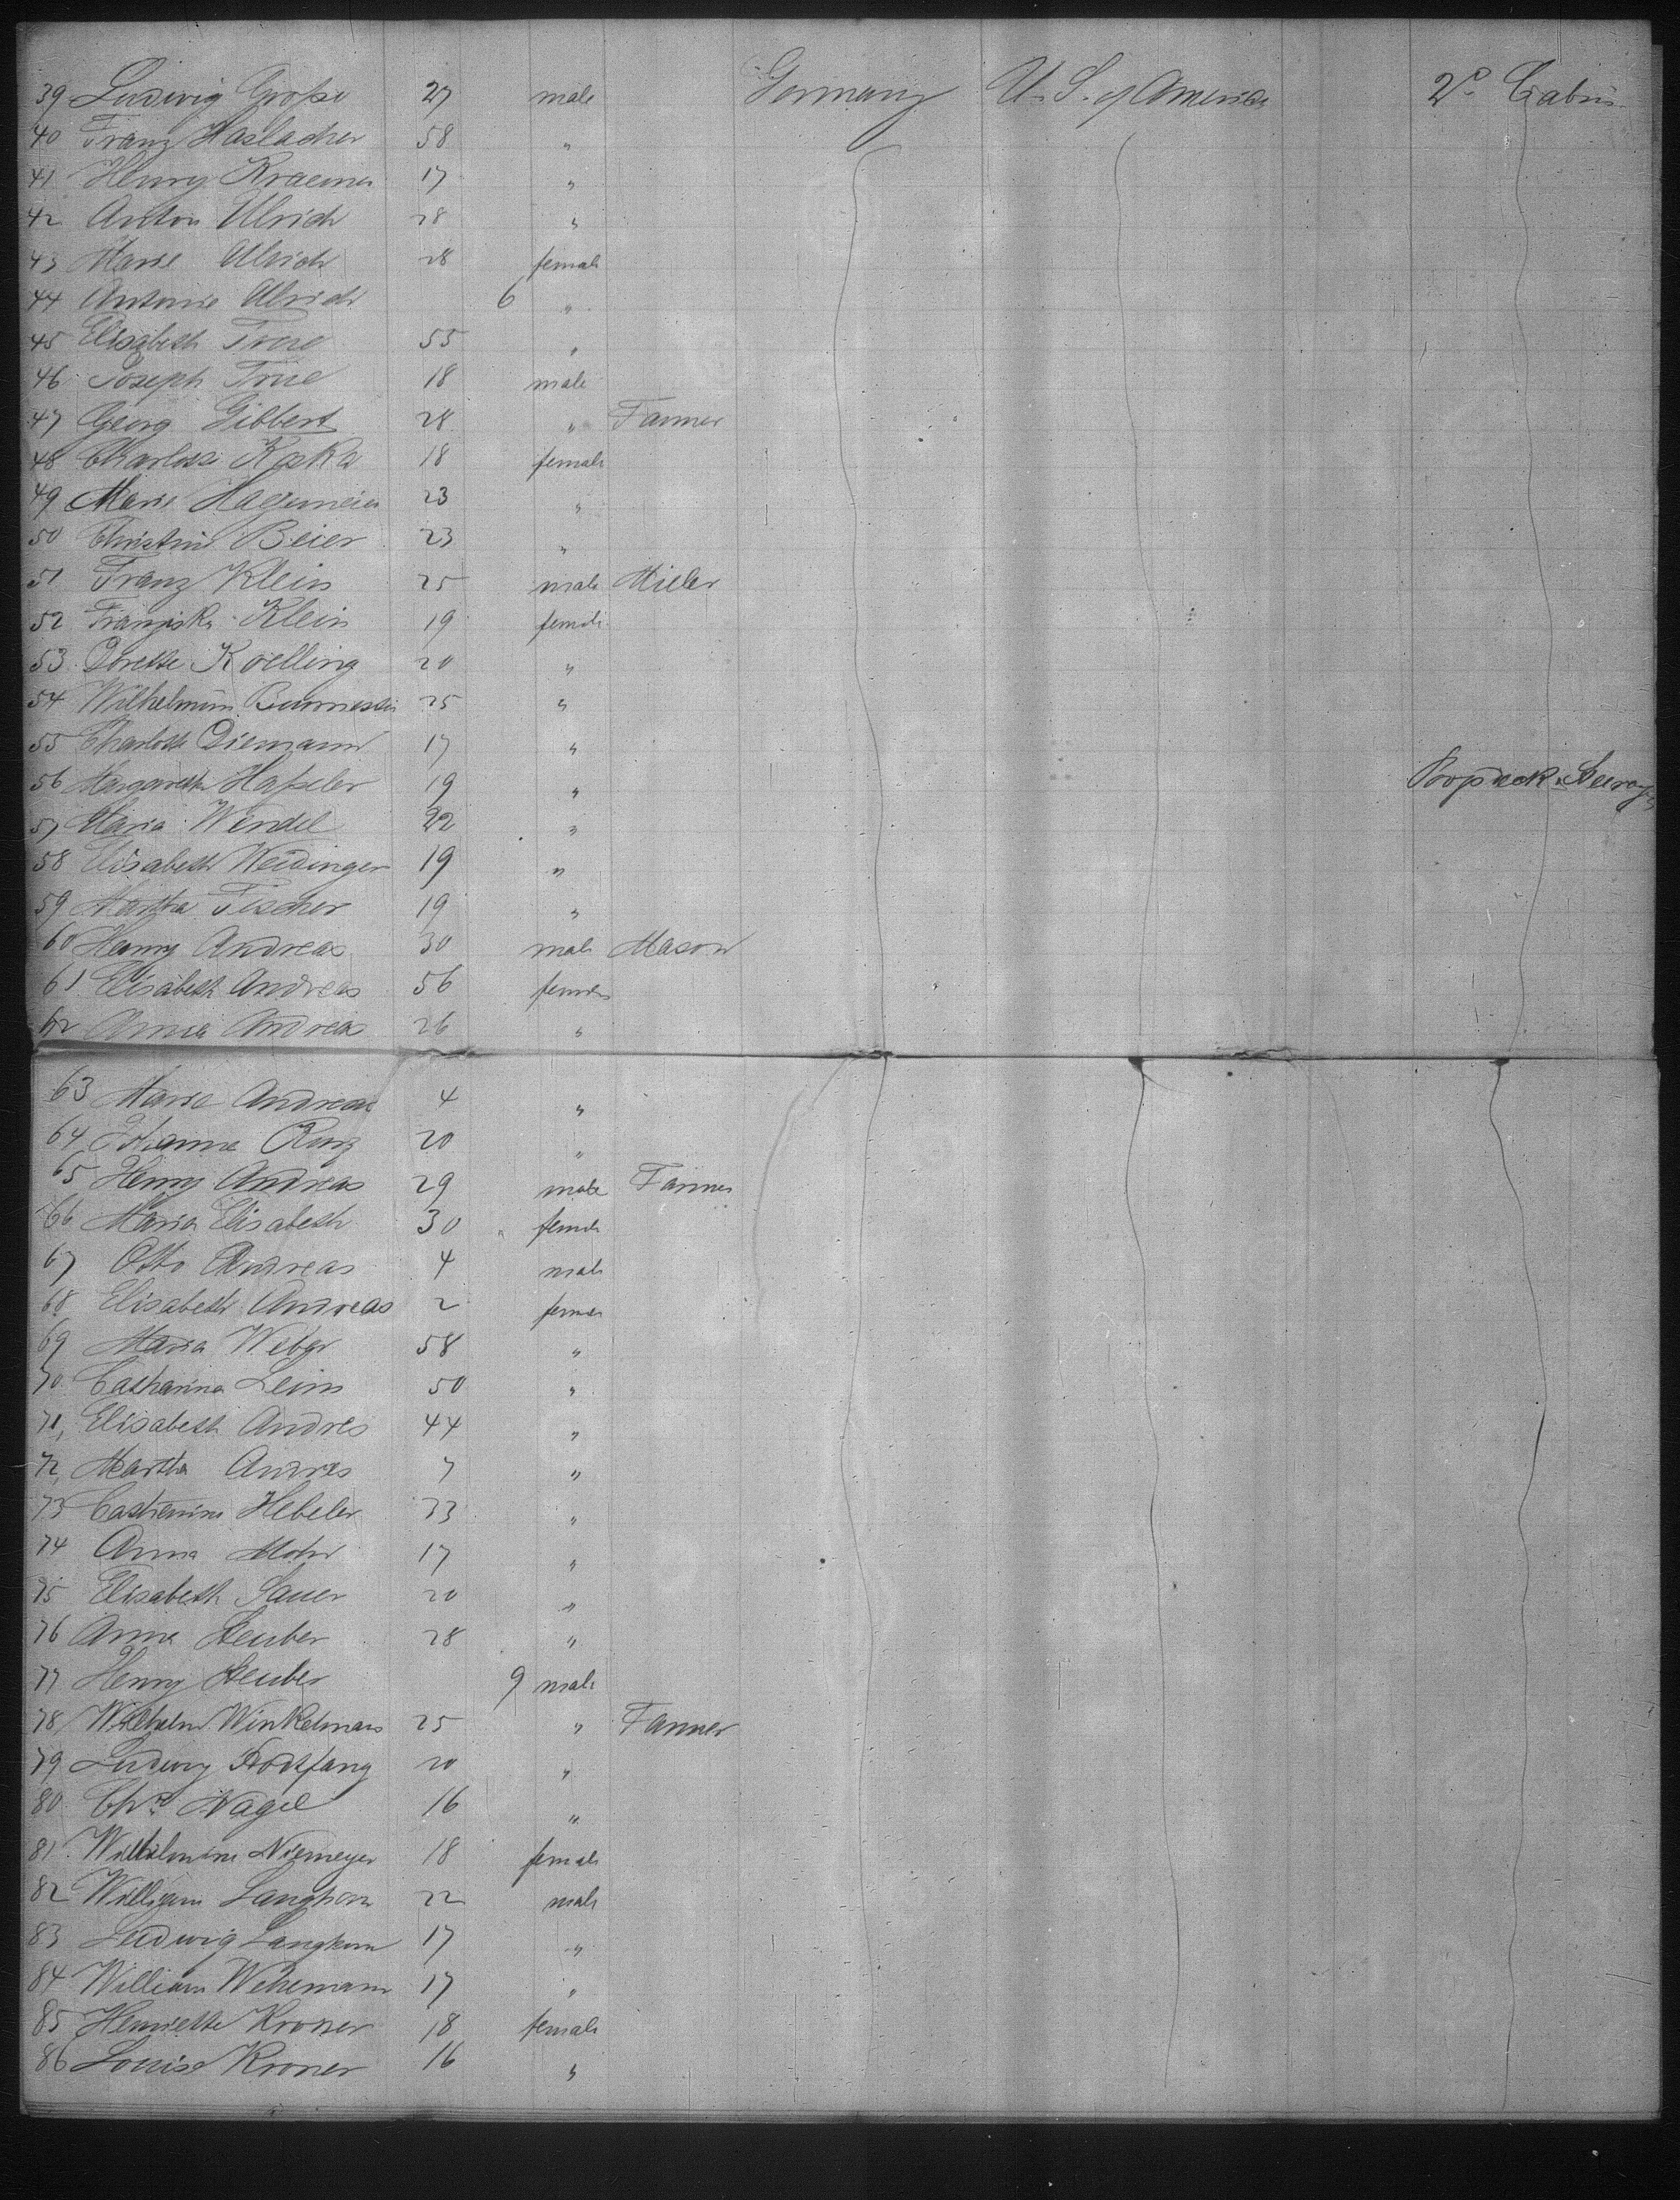 39 Ludwig Große 27 male Germany U. S. of America 2d Cabin
40 Franz Haslacher 58 "
41 Henry Kraemer 17 "
42 Anton Ulrich 28 "
43 Marie Ulrich 28 female
44 Antonie Ulrich 6 "
45 Elisabeth 55 "
46 Joseph 18 male
47 Georg Gibbert 28 " Farmer
48 Charlotte 18 female
49 Marie Hagemeier 23 "
50 Christine Beier 23 "
51 Franz Klein 25 male Miller
52 Franziska Klein 19 female
53 Dorette Koelling 20 "
54 Wilhelmine 25 "
55 Charlotte Diemann 17 "
56 Margarethe Haßeler 19 "
Steerage
57 Maria Wendel 22 "
58 Elisabeth Weidinger 19 "
59 Martha Fischer 19 "
60 Henry Andreas 30 male Mason
61 Elisabeth Andreas 56 female
62 Anna Andreas 26 "
63 Marie Andreas 4 "
64 Johanna 20 "
65 Henry Andreas 29 male Farmer
66 Maria Elisabeth 30 female
67 Otto Andreas 4 male
68 Elisabeth Andreas 2 female
69 Maria Weber 58 "
70 Catharina Leim 50 "
71, Elisabeth Andres 44 "
72, Martha Andres 7 "
73 Catharine Hebeler 23 "
74 Anna Mohr 17 "
75 Elisabeth Sauer 20 "
76 Anna Steuber 28 "
77 Henry Steuber 9 male
78 Wilhelm Winkelmann 25 " Farmer
79 Ludwig 20 "
80 Chr. Nagel 16 "
81 Wilhelmine Niemeyer 18 female
82 William Langhorn 22 male
83 Ludwig Langhorn 17 "
84 William Wehemann 17 "
85 Henriette Kroner 18 female
86 Louise Kroner 16 "